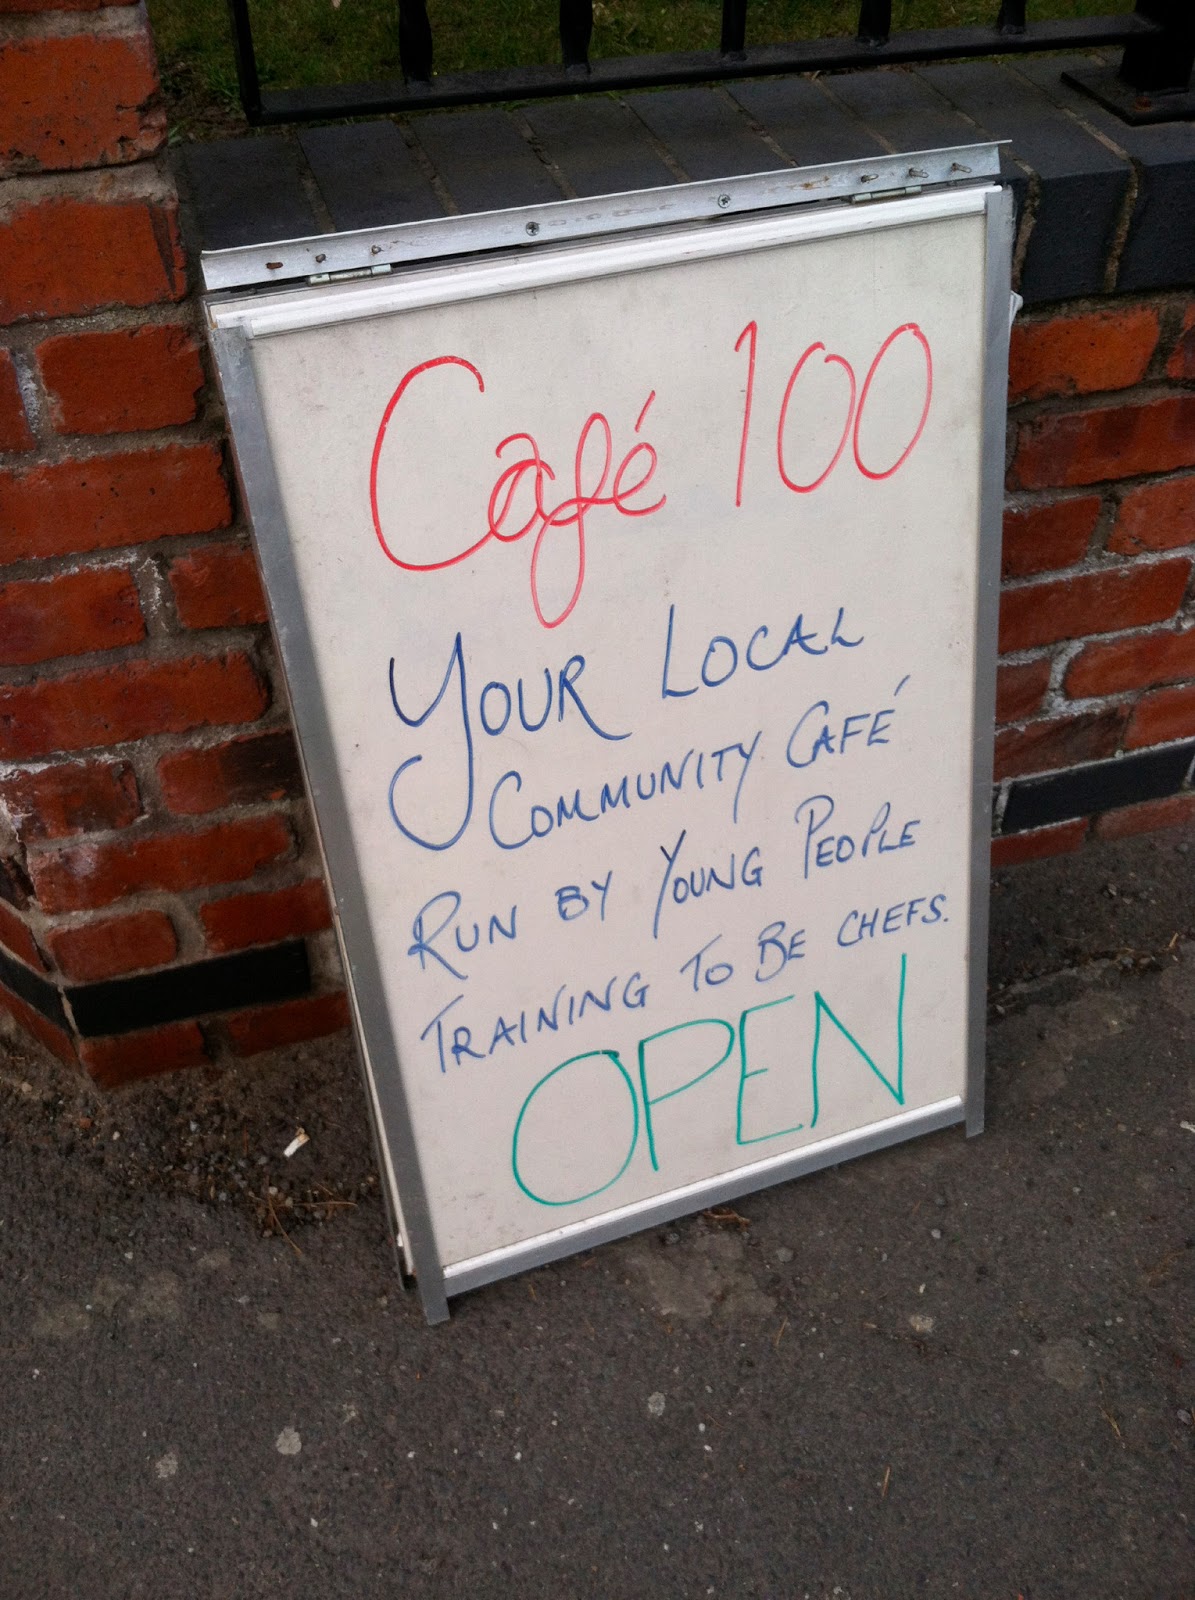 Café 100
YOUR LOCAL
COMMUNITY CAFÉ
RUN BY YOUNG PEOPLE
TRAINING TO BE CHEFS.
OPEN